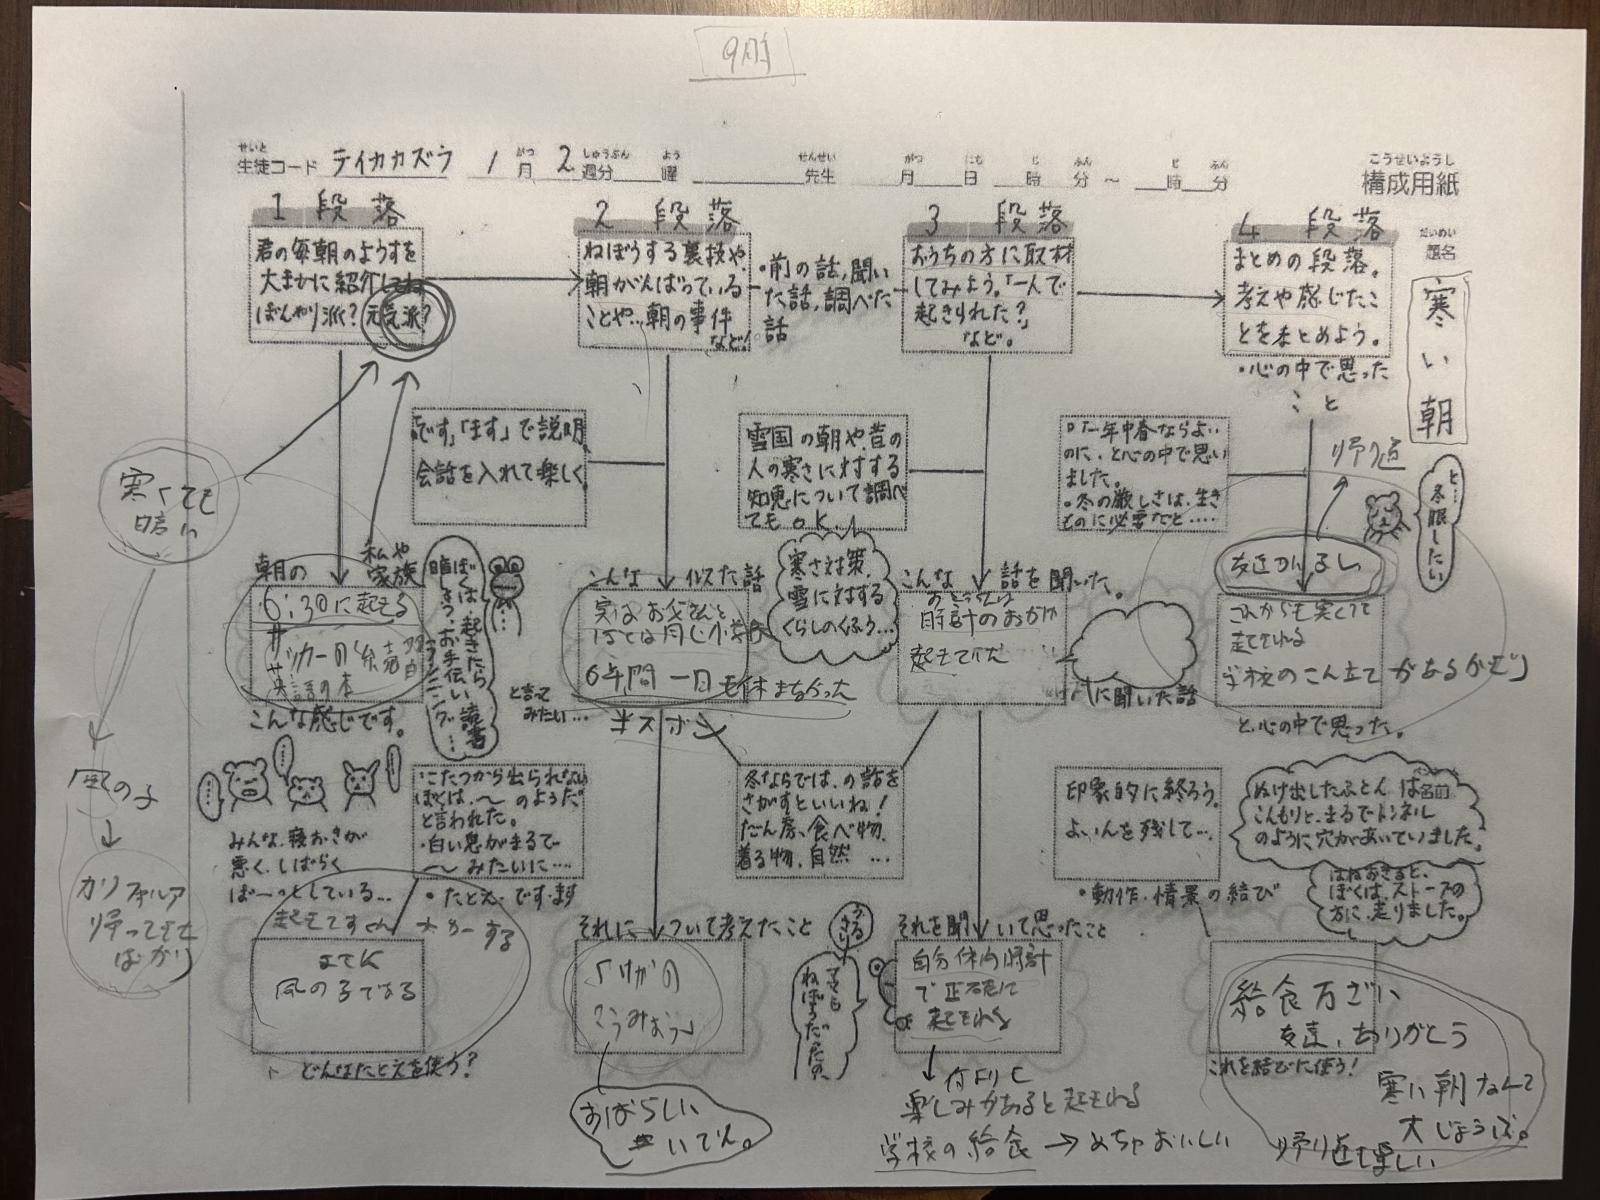 せいと
生徒コード テイカカズラ
1 がつ 月 2 しゅうぶん 週分 よう 曜
せんせい 先生
がつ 月 にち 日 じ 時 ふん 分 ~ じ 時 ふん 分
こうせいようし
構成用紙
だいめい
題名
寒い朝
1 段落
君の毎朝のようすを
大まかに紹介してね
ぼんやり派?元気派?
2 段落
ねぼうする裏技や、
朝がんばっている
ことや…朝の事件
など!
・前の話、聞い
た話、調べた
話
3 段落
おうちの方に取材
してみよう。「一人で
起きられた?」
など。
4 段落
まとめの段落。
考えや感じたこ
とをまとめよう。
・心の中で思った
こと
「です」「ます」で説明。
会話を入れて楽しく。
雪国の朝や、昔の
人の寒さに対する
知恵について調べ
てもOK!
「一年中春ならよい
のに、と心の中で思い
ました。
・冬の厳しさは、生き
ものに必要だと……
帰り道
と…
冬眠したい
寒くても
晴い
風の子
カリフォルニア
帰ってきた
ばかり
朝の
私や
家族
6:30に起きる
サッカーの
英語の本
こんな感じです。
ぼくは、起きたら
お手伝い、読書
ランニング…
と言って
みたい…
みんな、寝おきが
悪く、しばらく
ぼーっとしている…
・こたつから出られない
ぼくは、~のようだ
と言われた。
・白い息がまるで
~みたいに……
・たとえ・です・ます
起きてすぐ
まさに
風の子である
どんなたとえを使う?
こんな 似た話
実は お父さんと
6年間 一日も休まなかった
半ズボン
寒さ対策、
雪に対する
くらしのくふう…
冬ならでは、の話を
さがすといいね!
だん房、食べ物、
着る物、自然 …
それについて考えたこと
「けがの
こうみょう」
すばらしい
いでん。
こんな 話を聞いた。
時計のおかげ
に聞いた話
それを聞いて思ったこと
うるさい
ママも
ねぼうだったの、
自分体内時計
で正確に
起きれる
何より
楽しみがあると起きれる
学校の給食 → めちゃおいしい
これからも寒くて
起きれる
学校のこん立てがあるから
と、心の中で思った。
印象的に終ろう。
よいんを残して…
・動作、情景の結び
ぬけ出したふとんは
こんもりと、まるでトンネル
のように穴があいていました。
はねおきると、
ぼくは、ストーブの
方に、走りました。
給食万ざい
友達、ありがとう
これを結びに使う!
寒い朝なんて
大じょうぶ。
帰り道も楽しい